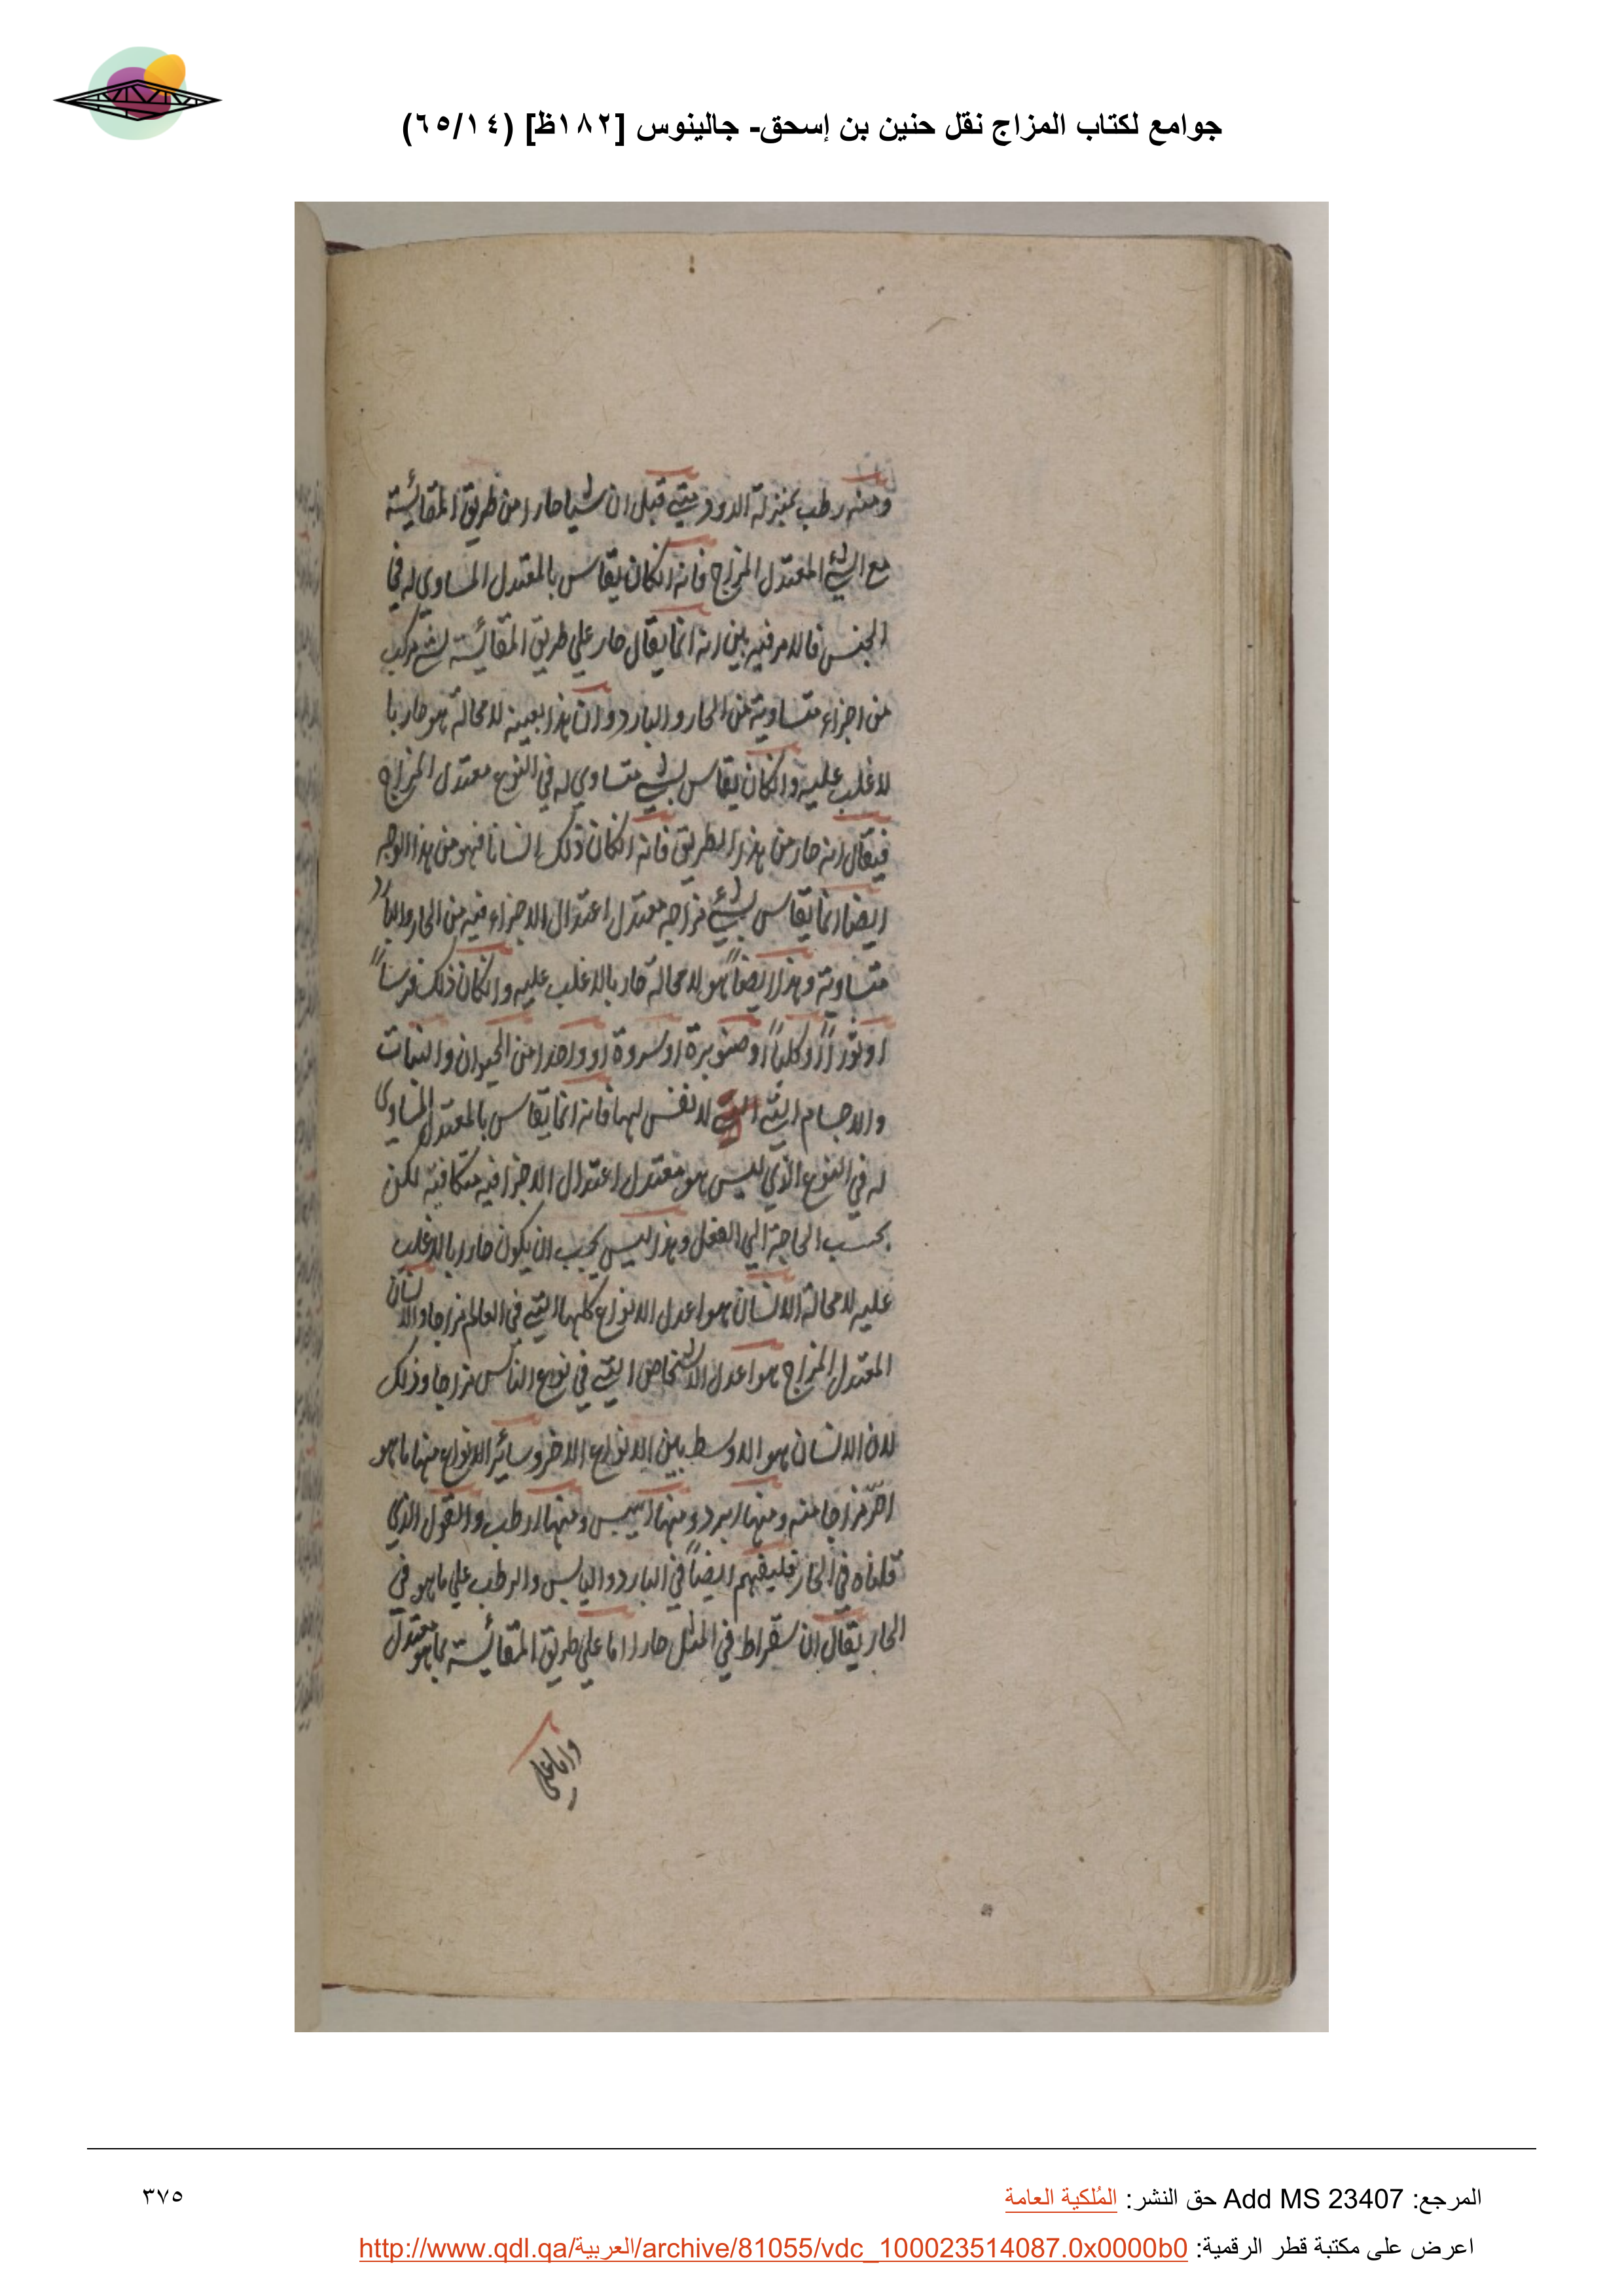 جوامع لكتاب المزاج نقل حنين بن إسحق- جالينوس [١٨٢ظ] (٦٥/١٤)
ومنه رطب بمنزلة الدود متي قيل ان شيا حارا من طريق المقائسة
مع الشئ المعتدل المزاج فانه انكان يقاس بالمعتدل المساوي له في
الجنس فالامر فيه بين انه انما يقال حار علي طريق المقائسة لشئ مركب
من اجزاء متساوية من الحار والبارد وان هذا بعينه لا محالة هو حار با
لاغلب عليه وانكان يقاس بشئ متساوي له في النوع معتدل المزاج
فيقال انه حار من هذا الطريق فانه انكان ذلك انسانا فهو من هذا الوجه
ايضا انما يقاس بشئ مزاجه معتدل اعتدال الاجزاء فيه من الحار والبارد
متساوية وهذا ايضاً هو لا محالة حار بالاغلب عليه وانكان ذلك فرساً
او ثوراً او كلباً او صنوبرة او سروة او واحدا من الحيوان والنبات
والاجسام التي التي لا نفس لها فانه انما يقاس بالمعتدل المساوي
له في النوع الذي ليس هو معتدل اعتدال الاجزا فيه متكافيه لكن
بحسب الحاجة الي الفعل وهذا ليس يجب ان يكون حارا بالاغلب
عليه لا محالة الانسان هو اعدل الانواع كلها التي في العالم مزاجا والانسان
المعتدل المزاج هو اعدل الاشخاص التي في نوع الناس مزاجا وذلك
لان الانسان هو الاوسط بين الانواع الاخر وسائر الانواع منها ما هو
احرّ مزاجا منه ومنها ابرد ومنها ايبس ومنها ارطب والقول الذي
قلناه في الحار فليفهم ايضاً في البارد واليابس والرطب علي ما هو في
الحار يقال ان سقراط في المثل حار اما علي طريق المقائسة بما هو معتدل
واما علي
المرجع: Add MS 23407 حق النشر: المُلكية العامة
٣٧٥
اعرض على مكتبة قطر الرقمية: http://www.qdl.qa/العربية/archive/81055/vdc_100023514087.0x0000b0